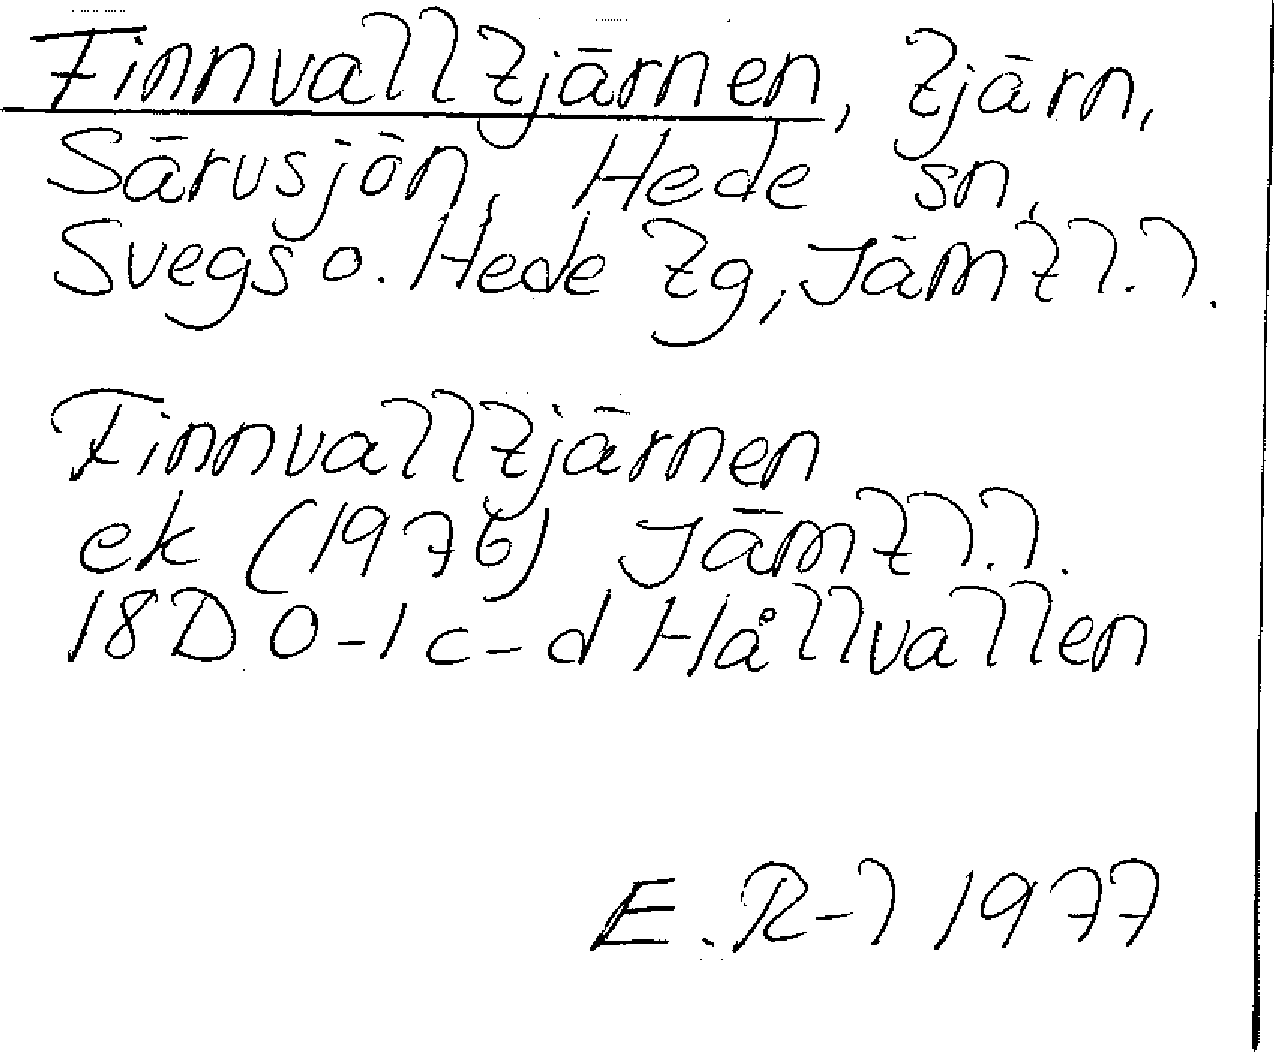 Finnvalltjärnen, tjärn,
Särvsjön, Hede sn,
Svegs o. Hede tg, Jämtl.l.
Finnvalltjärnen
ek (1976) Jämtl.l.
18D 0-1 c-d Hållvallen
E. R-l 1977